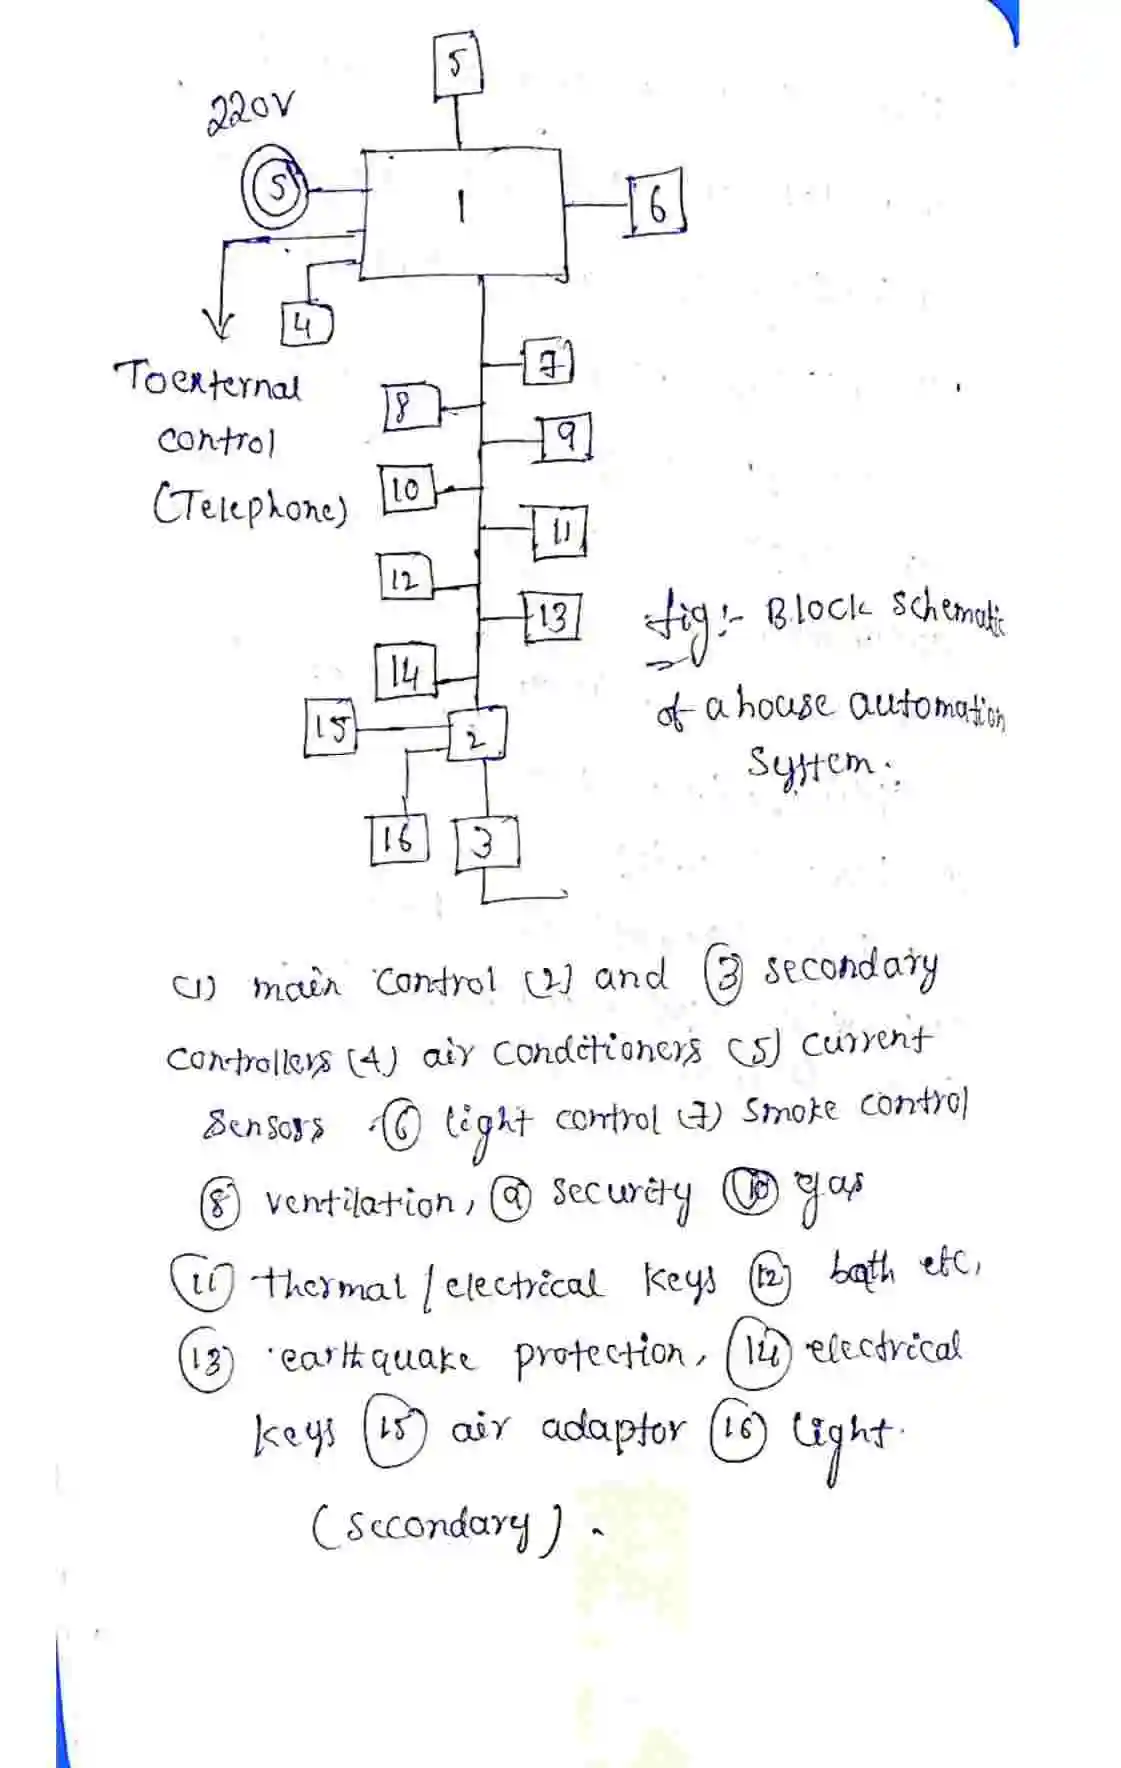 5
220V
S
1
6
4
To external
control
(Telephone)
7
8
9
10
11
12
13
14
15
2
16
3
fig:- Block schematic
of a house automation
system.
(1) main control (2) and (3) secondary
controllers (4) air conditioners (5) current
sensors (6) light control (7) smoke control
(8) ventilation, (9) security (10) gas
(11) thermal / electrical keys (12) bath etc,
(13) earthquake protection, (14) electrical
keys (15) air adaptor (16) light.
(secondary).